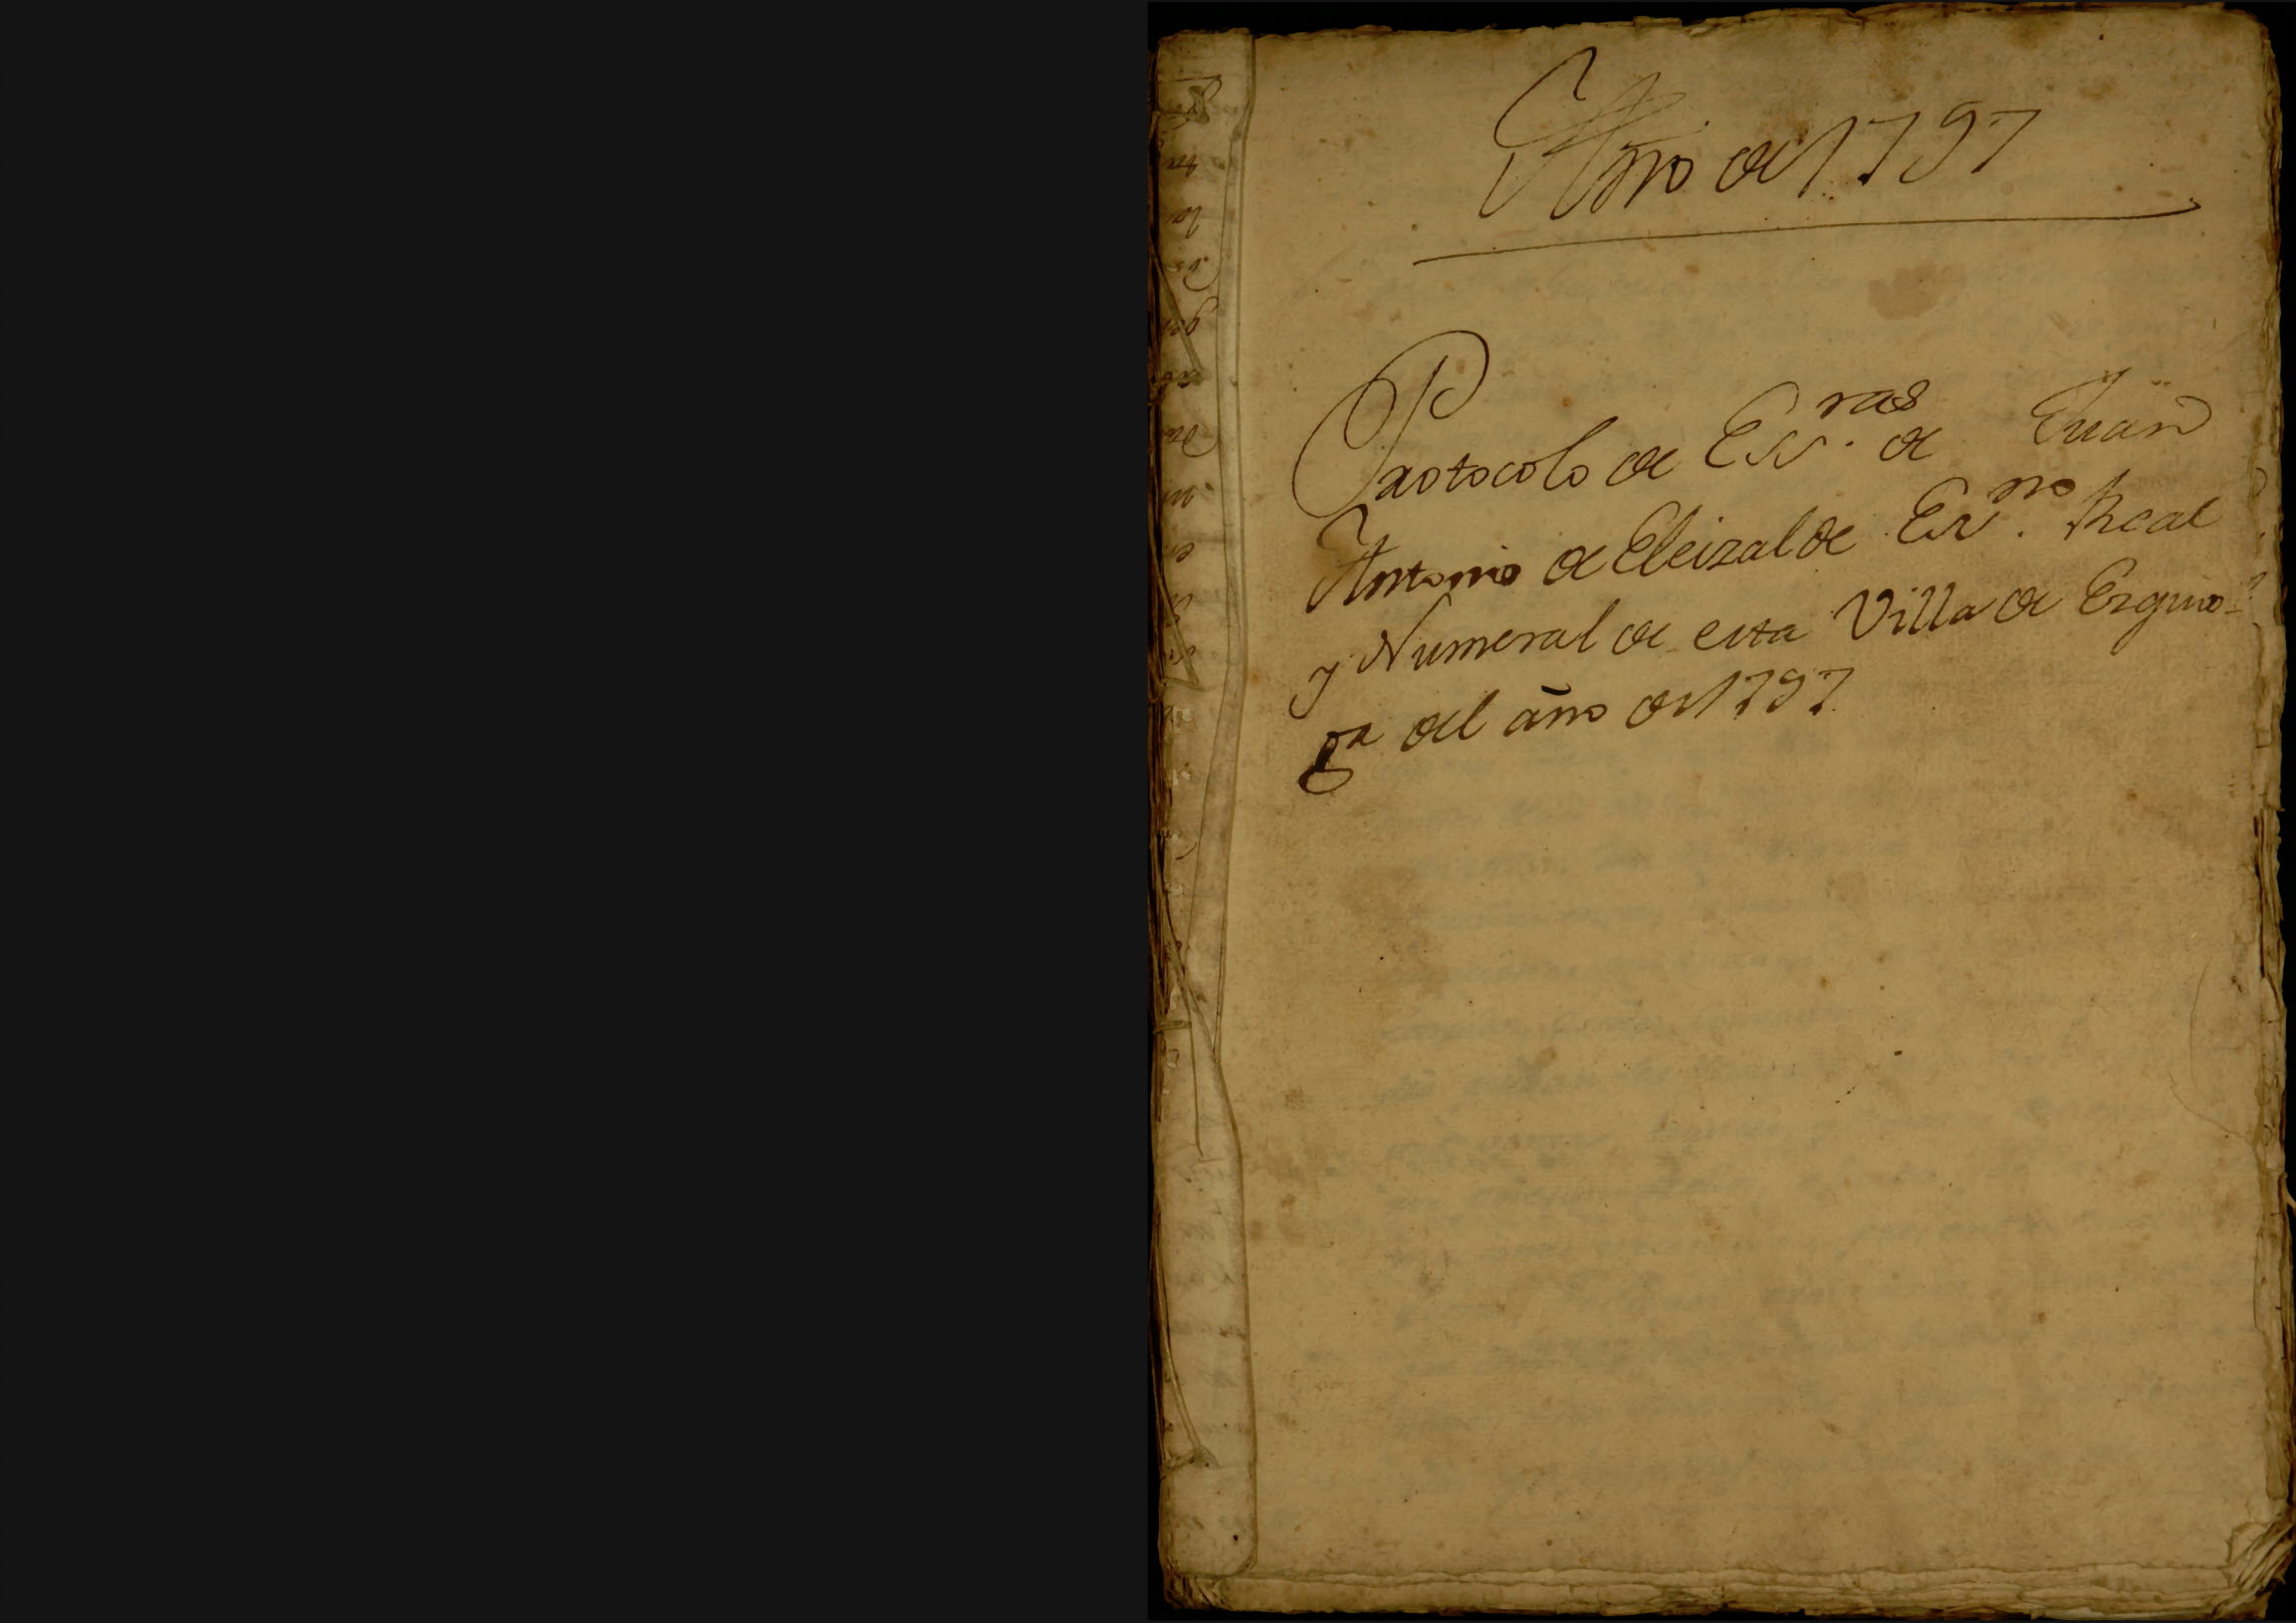 Año de 1797
Protocolo de Esc.ras de Juan
Antonio de Eleizalde Es.no Real
y Numeral de esta Villa de Ezquio-
ga del año de 1797